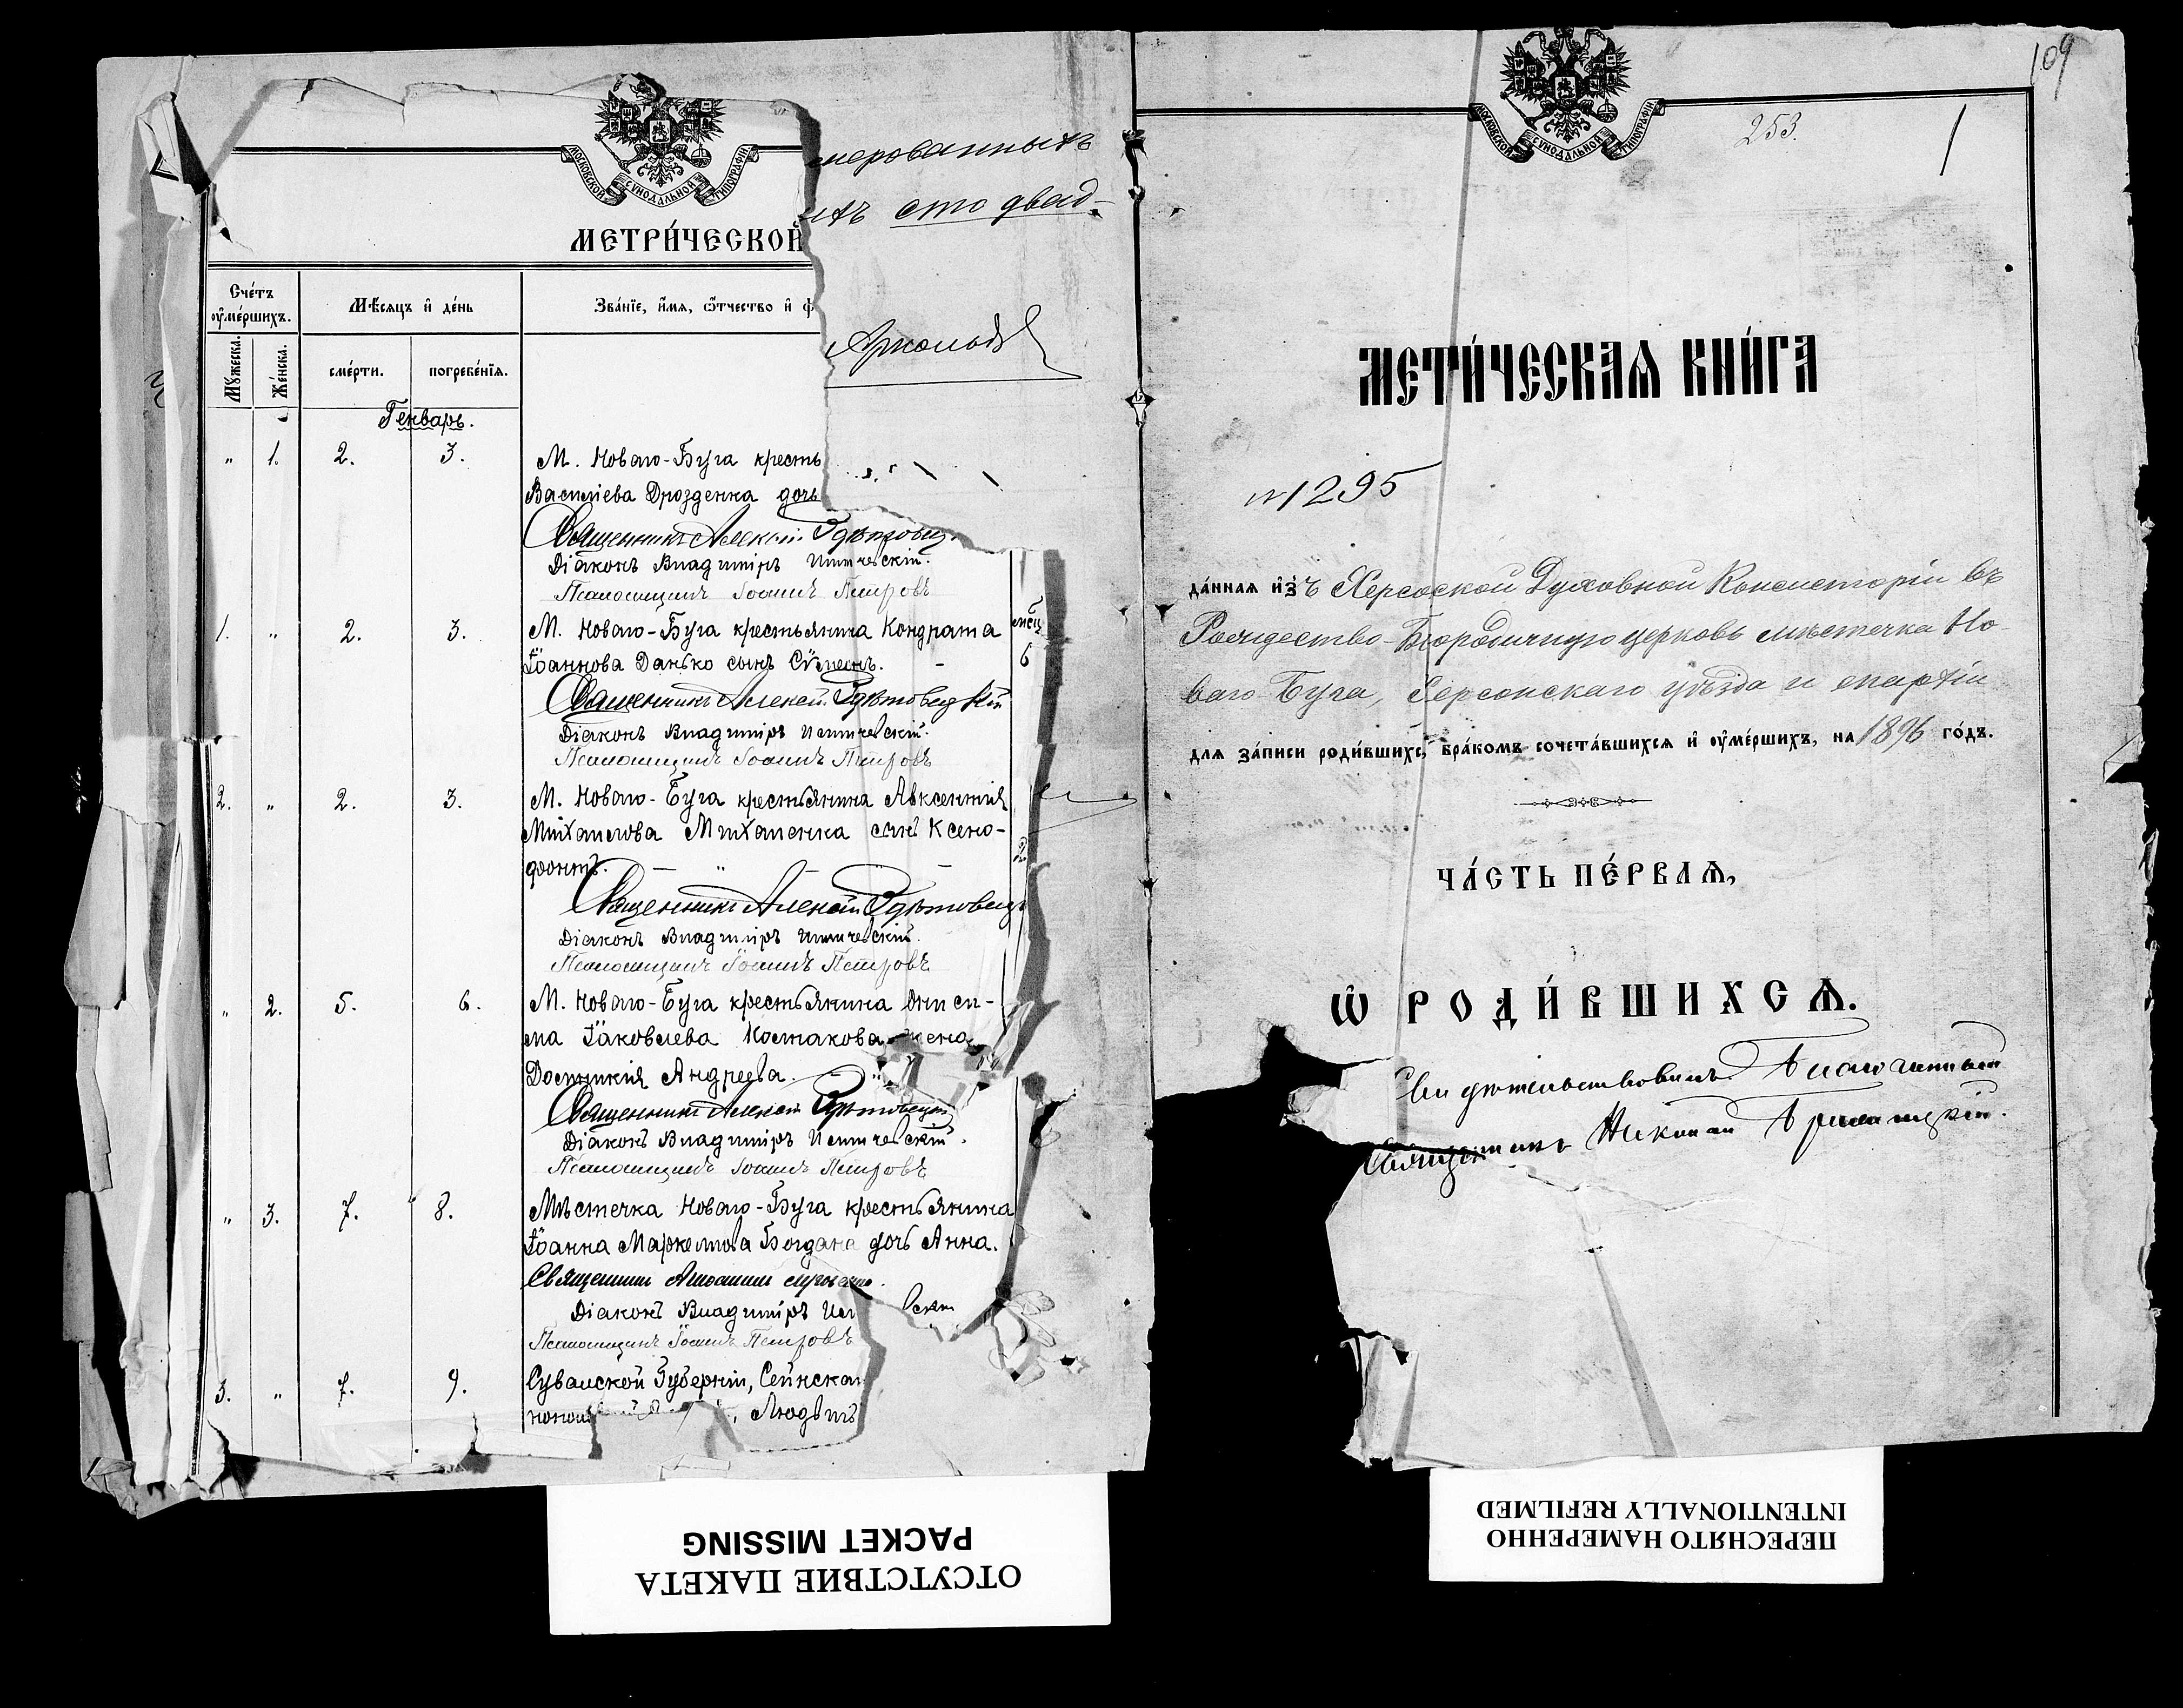 МОСКОВСКОЙ СѴНОДАЛЬНОЙ ТИПОГРАФІИ
МЕТРИ́ЧЕСКОЙ
Сче́тъ ᲂу҆ме́ршихъ.
Мѣ́сяцъ и҆ де́нь
Зва́нїе, и҆́мя, ѻ҆́тчество и҆ ф
Мꙋ́жеска.
Же́нска.
сме́рти.
погребе́нїя.
Генварь.
" 1. 2. 3. М. Новаго-Буга кресть
Василіева Дрозденка дочь
Священникъ Алексій
Діаконъ Владиміръ
Псаломщикъ Іоаннъ Петровъ
1. " 2. 3. М. Новаго-Буга крестьянина Кондрата
Іоаннова Данько сынъ Сѵмеонъ. -
6
Священникъ Алексій
Діаконъ Владиміръ
Псаломщикъ Іоаннъ Петровъ
2. " 2. 3. М. Новаго-Буга крестьянина Авксентія
Михаилова Михаленка сынъ Ксено-
фонтъ. — "
2
Священникъ Алексій
Діаконъ Владиміръ
Псаломщикъ Іоаннъ Петровъ
" 2. 5. 6. М. Новаго-Буга крестьянина Ониси-
ма Іаковлева Костакова жена
Досиѳкія Андреева. — "
Священникъ Алексій
Діаконъ Владиміръ
Псаломщикъ Іоаннъ Петровъ
" 3. 7. 8. Мѣстечка Новаго-Буга крестьянина
Іоанна Маркелова Богдана дочь Анна.
Священникъ
Діаконъ Владиміръ
Псаломщикъ Іоаннъ Петровъ
3. " 7. 9. Сувалской Губерніи, Сейнска
, Людвигъ
мерованныхъ
ихъ сто двад-
109
253.
1
МОСКОВСКОЙ СѴНОДАЛЬНОЙ ТИПОГРАФІИ
МЕТИ́ЧЕСКАѦ КНИ́ГА
№1295
да́нная и҆зъ Херсоской Духовной Консисторіи въ
Рождество-Богородичную церковь мѣстечка Но-
ваго-Буга, Херсонскаго уѣзда и епархіи
для за́писи роди́вшихся, бра́комъ сочета́вшихся и҆ ᲂу҆ме́ршихъ, на 1896 го́дъ.
ЧА́СТЬ ПЕ́РВАѦ,
Ѽ РОДИ́ВШИХСѦ.
Свидѣтельствовалъ Благочинный
Священникъ Николай
ОТСУТСТВИЕ ПАКЕТА
PACKET MISSING
ПЕРЕСНЯТО НАМЕРЕННО
INTENTIONALLY REFILMED